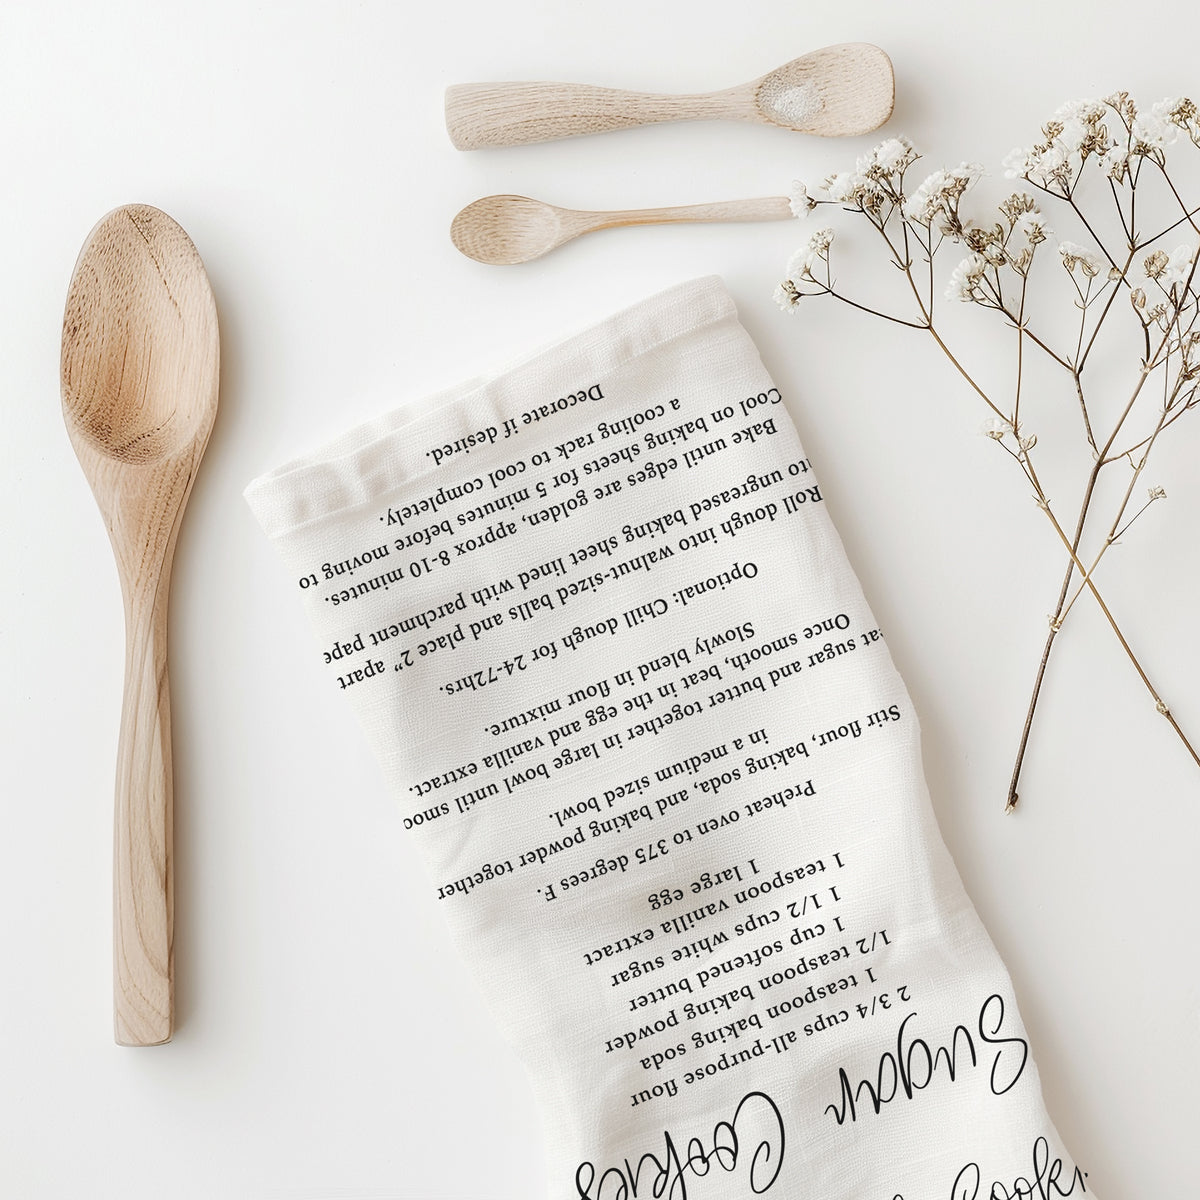 Cooki
Sugar Cookies
2 3/4 cups all-purpose flour
1 teaspoon baking soda
1/2 teaspoon baking powder
1 cup softened butter
1 1/2 cups white sugar
1 teaspoon vanilla extract
1 large egg
Preheat oven to 375 degrees F.
Stir flour, baking soda, and baking powder together
in a medium sized bowl.
eat sugar and butter together in large bowl until smoo
Once smooth, beat in the egg and vanilla extract.
Slowly blend in flour mixture.
Optional: Chill dough for 24-72hrs.
Roll dough into walnut-sized balls and place 2” apart
nto ungreased baking sheet lined with parchment pape
Bake until edges are golden, approx 8-10 minutes.
Cool on baking sheets for 5 minutes before moving to
a cooling rack to cool completely.
Decorate if desired.